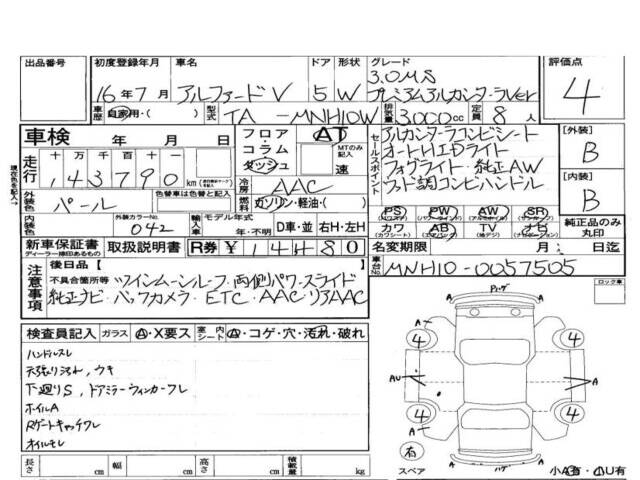 出品番号 初度登録年月 車名 ドア 形状 グレード 評価点
16年7月 アルファードV 5 W 3.0MS プレミアムアルカンターラVer 4
車歴 自家用・( ) 型式 TA-MNH10W 排気量 3000cc 定員 8人
車検 年 月 日 フロア コラム ダッシュ AT MTのみ記入 速
走行 十万千百十 143790 km
セールスポイント
アルカンターラコンビシート
オートHIDライト
フォグライト 純正AW
ウッド調コンビハンドル
[外装] B
[内装] B
現在色を記入→
外装色 パール 色替車は色替と記入 冷房 AAC 燃料 ガソリン・軽油・( )
内装色 外装カラーNo. 042 輸入車 モデル年式 年・不明 D車・並 右H・左H
PS (パワーステ) PW (パワーウインド) AW (アルミホイル) SR (サンルーフ)
カワ (カワシート) AB (エアバック) TV (地デジ) ナビ 純正品のみ丸印
新車保証書 ディーラー捺印あるもの 取扱説明書 R券 ¥14480 名変期限 月 日迄
車台No. MNH10-0057505
注意事項 後日品( )
不具合箇所等 ツインムーンルーフ 両側パワースライド
純正ナビ バックカメラ ETC AAC リアAAC
ロック車
検査員記入 ガラス A・X要ス 室内シート A・コゲ・穴・汚れ・破れ
ハンドルスレ
天張り汚れ, ウキ
下廻りS, ドアミラーウィンカーワレ
ホイルA
Rゲートキャッチワレ
オイルモレ
Pレゲ
A 4 4
AU A
4 4
A A
有
スペア ハゲ 小A有・小U有
長さ cm 幅 cm 高さ cm 積載量 kg